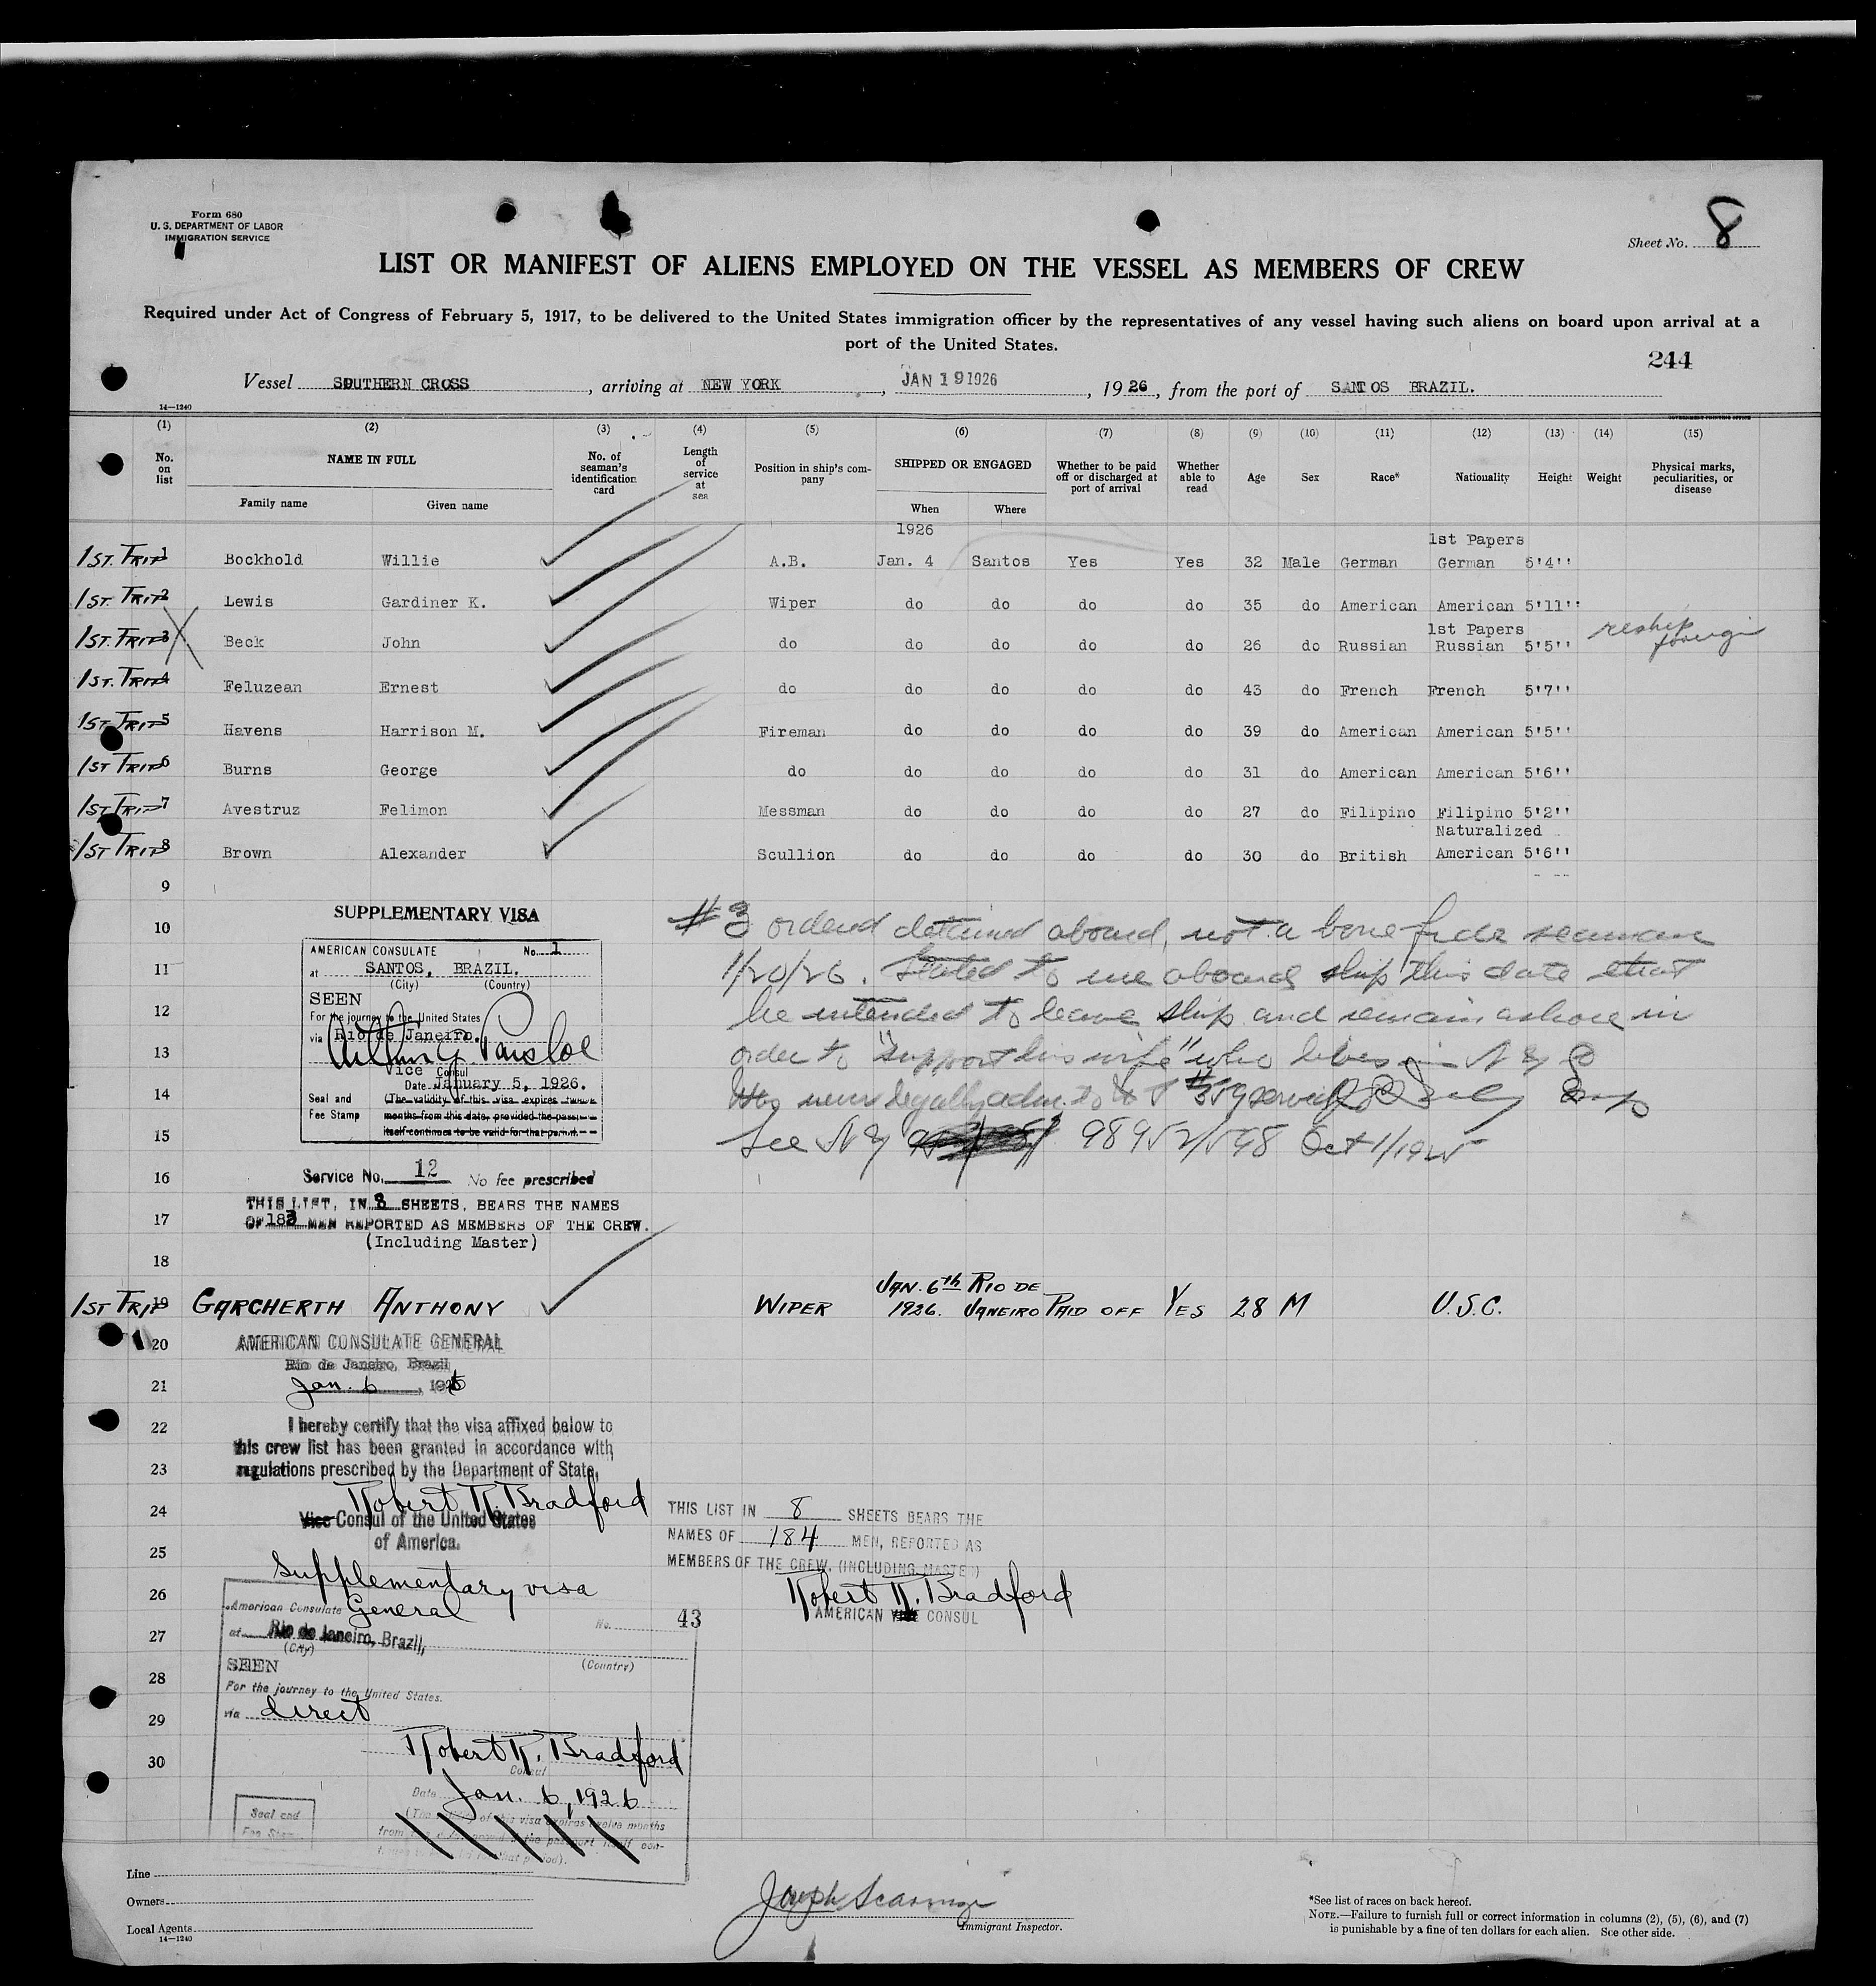 Form 680
U. S. DEPARTMENT OF LABOR
IMMIGRATION SERVICE
Sheet No. 8
LIST OR MANIFEST OF ALIENS EMPLOYED ON THE VESSEL AS MEMBERS OF CREW
Required under Act of Congress of February 5, 1917, to be delivered to the United States immigration officer by the representatives of any vessel having such aliens on board upon arrival at a
port of the United States.
244
Vessel SOUTHERN CROSS, arriving at NEW YORK, JAN 19 1926, 1926, from the port of SANTOS BRAZIL.
14—1240
(1) (2) (3) (4) (5) (6) (7) (8) (9) (10) (11) (12) (13) (14) (15)
No. on list
NAME IN FULL
Family name Given name
No. of seaman's identification card
Length of service at sea
Position in ship's company
SHIPPED OR ENGAGED
When Where
Whether to be paid off or discharged at port of arrival
Whether able to read
Age Sex Race* Nationality Height Weight
Physical marks, peculiarities, or disease
1926
1st Papers
1st Trip 1 Bockhold Willie A.B. Jan. 4 Santos Yes Yes 32 Male German German 5'4''
1st Trip 2 Lewis Gardiner K. Wiper do do do do 35 do American American 5'11''
1st Papers
1st Trip 3 Beck John do do do do do 26 do Russian Russian 5'5'' reship foreign
1st Trip 4 Feluzean Ernest do do do do do 43 do French French 5'7''
1st Trip 5 Havens Harrison M. Fireman do do do do 39 do American American 5'5''
1st Trip 6 Burns George do do do do do 31 do American American 5'6''
1st Trip 7 Avestruz Felimon Messman do do do do 27 do Filipino Filipino 5'2''
Naturalized
1st Trip 8 Brown Alexander Scullion do do do do 30 do British American 5'6''
9
10
11
12
13
14
15
16
17
18
SUPPLEMENTARY VISA
AMERICAN CONSULATE No. 1
at SANTOS, BRAZIL.
(City) (Country)
SEEN
For the journey to the United States
via Rio de Janeiro.
Vice Consul
Date January 5, 1926.
Seal and Fee Stamp
(The validity of this visa expires twelve
months from this date, provided the passport
itself continues to be valid for that period.
Service No. 12 No fee prescribed
THIS LIST, IN 8 SHEETS, BEARS THE NAMES
OF 183 MEN REPORTED AS MEMBERS OF THE CREW.
(Including Master)
#3 ordered detained aboard, not a bone fide seaman
1/20/26. Stated to me aboard ship this date that
he intended to leave ship and remain ashore in
order to "support his wife" who lives in N Y
never legally adm. to U S
See N Y 98952/598 Oct 1/1925
1st Trip 19 GARCHERTH ANTHONY WIPER JAN. 6th 1926. RIO DE JANEIRO PAID OFF YES 28 M U.S.C.
20
21
22
23
24
25
26
27
28
29
30
AMERICAN CONSULATE GENERAL
Rio de Janeiro, Brazil
Jan. 6, 1926
I hereby certify that the visa affixed below to
this crew list has been granted in accordance with
regulations prescribed by the Department of State,
Robert R. Bradford
Vice Consul of the United States
of America.
THIS LIST IN 8 SHEETS BEARS THE
NAMES OF 184 MEN, REPORTED AS
MEMBERS OF THE CREW, (INCLUDING MASTER)
Robert R. Bradford
AMERICAN VICE CONSUL
Supplementary visa
American Consulate General
No. 43
at Rio de Janeiro, Brazil,
(City) (Country)
SEEN
For the journey to the United States.
via direct
Robert R. Bradford
Consul
Date Jan. 6, 1926
(The validity of this visa expires twelve months
from this date, provided the passport itself con-
tinues to be valid for that period).
Seal and
Fee Stamp
Line
Owners
Local Agents
14—1240
Joseph
Immigrant Inspector.
*See list of races on back hereof.
NOTE.—Failure to furnish full or correct information in columns (2), (5), (6), and (7)
is punishable by a fine of ten dollars for each alien. See other side.